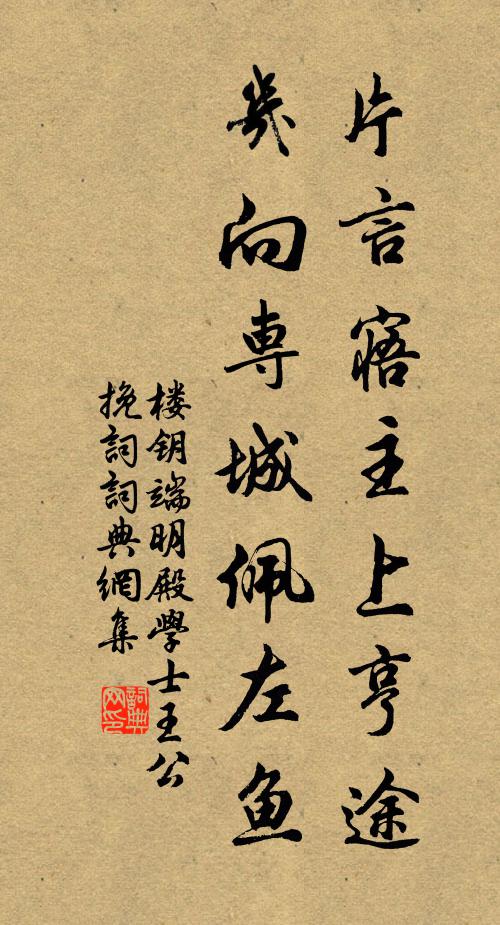 片言寤主上亨途
几向専城佩左鱼
楼钥端明殿學士王公
挽詞詞典網集
詞典网印